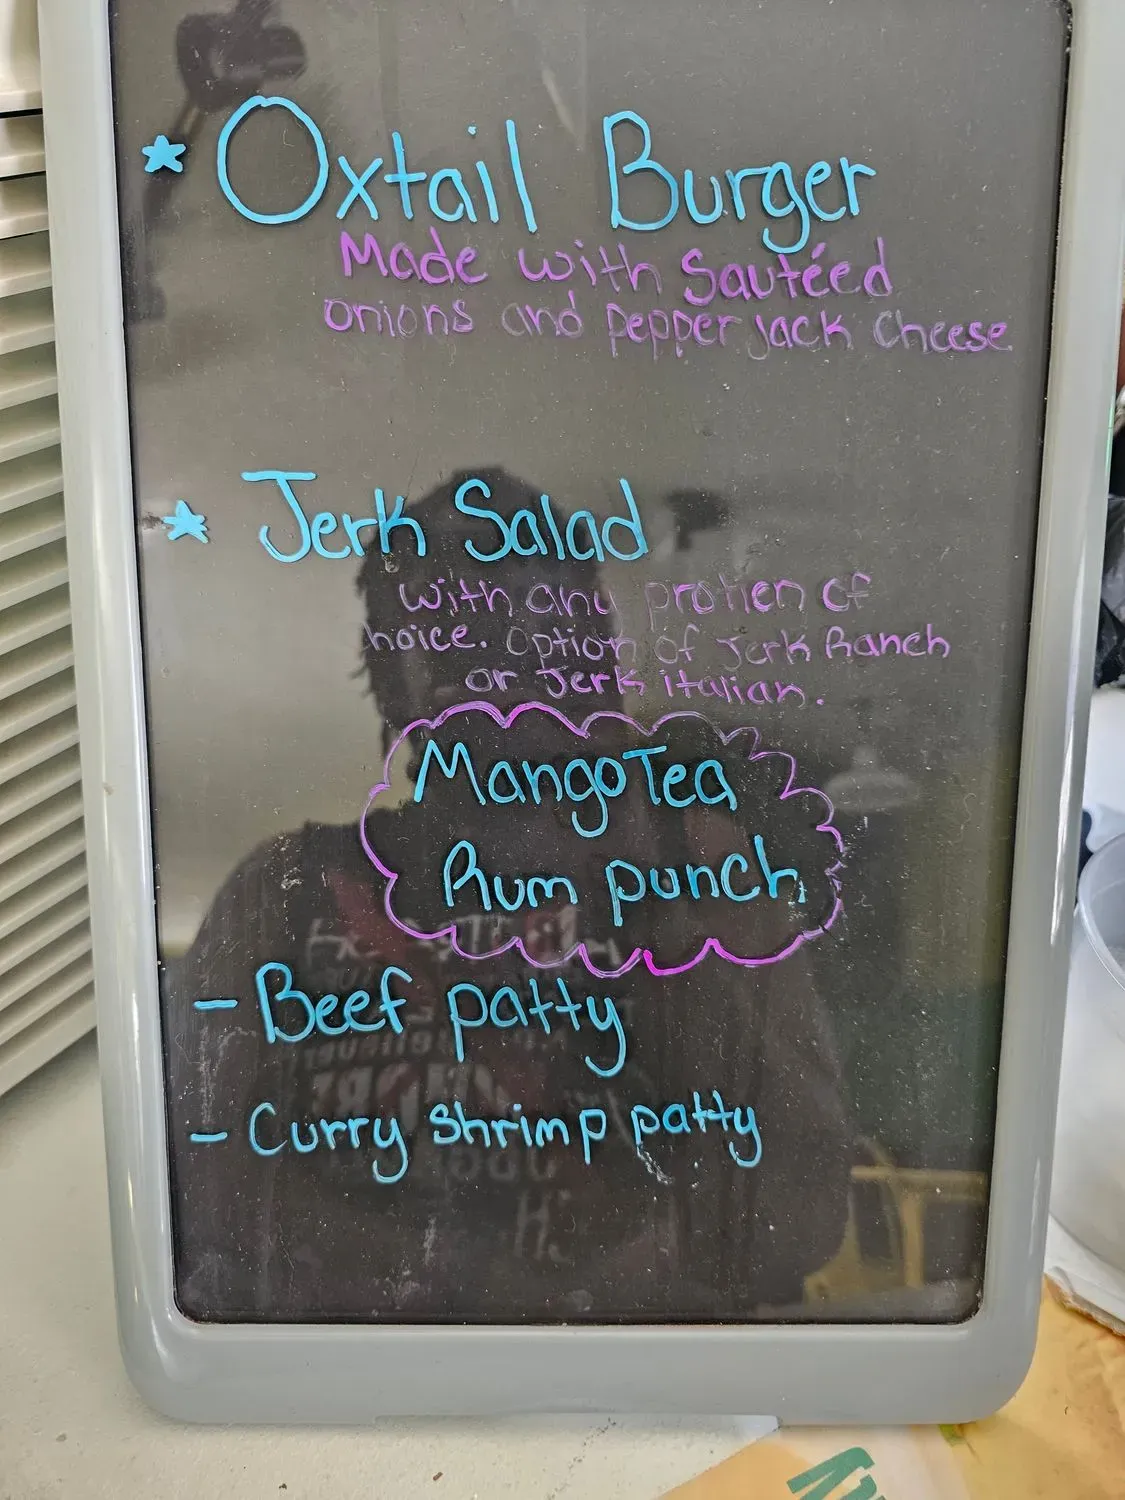 Oxtail Burger
Made with Sautéed
onions and pepper jack cheese
Jerk Salad
with any protien of
hoice. Option of Jerk Ranch
or Jerk italian.
Mango Tea
Rum punch
- Beef patty
- Curry Shrimp patty